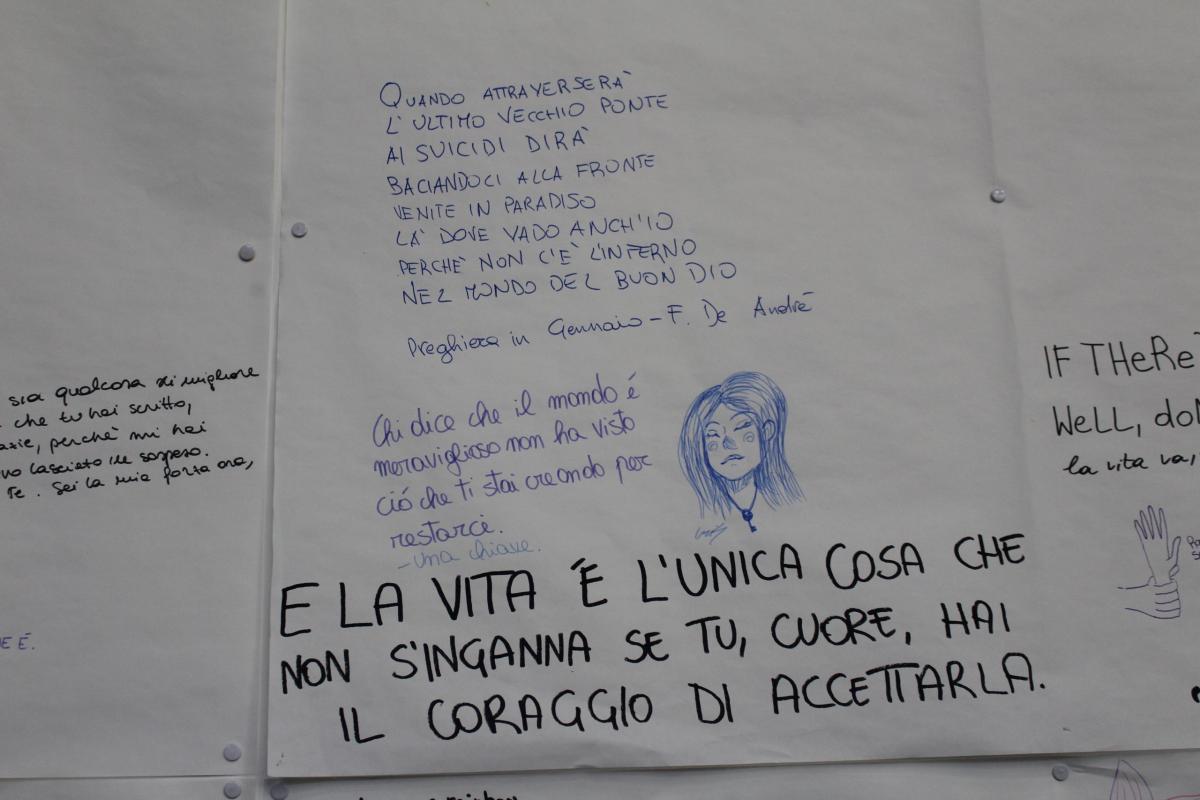 QUANDO ATTRAVERSERÀ
L'ULTIMO VECCHIO PONTE
AI SUICIDI DIRÀ
BACIANDOCI ALLA FRONTE
VENITE IN PARADISO
LÀ DOVE VADO ANCH'IO
PERCHÈ NON C'È L'INFERNO
NEL MONDO DEL BUON DIO
Preghiera in Gennaio - F. De Andrè
Chi dice che il mondo é
meraviglioso non ha visto
ció che ti stai creando per
restarci.
- una chiave.
E LA VITA É L'UNICA COSA CHE
NON S'INGANNA SE TU, CUORE, HAI
IL CORAGGIO DI ACCETTARLA.
sia qualcosa di migliore
che tu hai scritto,
perchè mi hai
lasciato in sospeso.
Te. Sei la mia forza ora,
E É.
IF THERE
WELL, DON
la vita va,